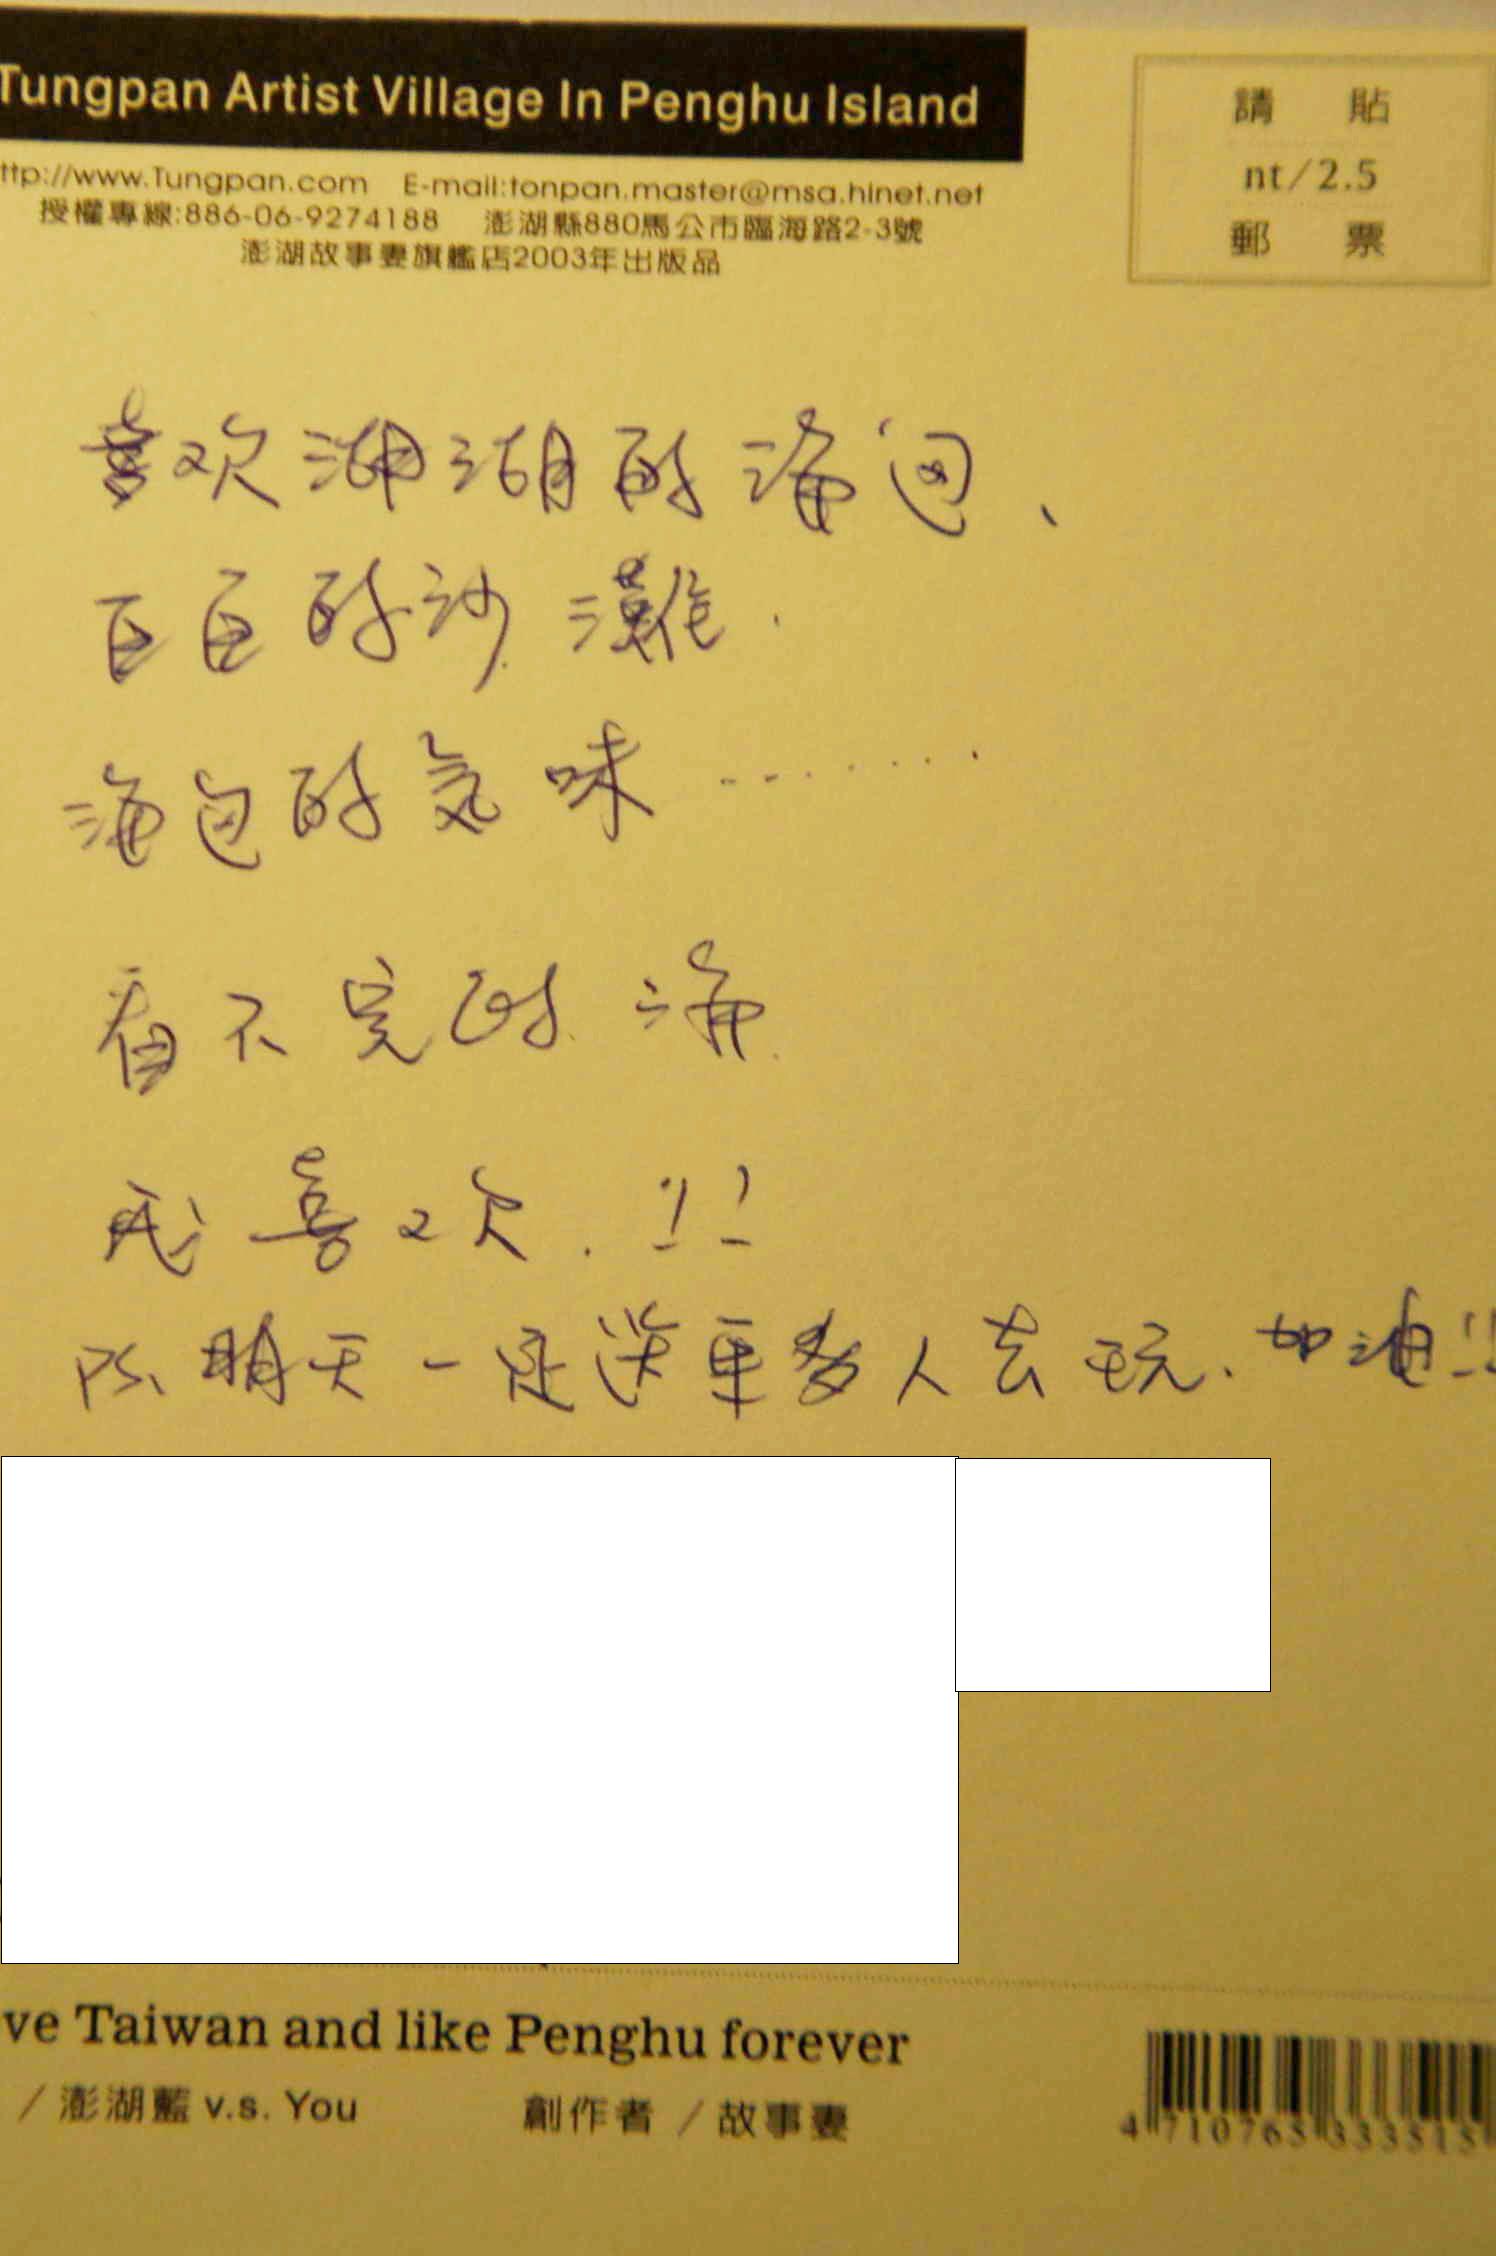 Tungpan Artist Village In Penghu Island
ttp://www.Tungpan.com E-mail:tonpan.master@msa.hinet.net
授權專線:886-06-9274188 澎湖縣880馬公市臨海路2-3號
澎湖故事妻旗艦店2003年出版品
請 貼
nt/2.5
郵 票
喜欢湖的海边、
白白的沙灘.
海边的気味........
看不完的海.
我喜欢.!!
PS、明天一定送更多人去玩.加油!!
ve Taiwan and like Penghu forever
/ 澎湖藍 v.s. You 創作者 / 故事妻
4 710765 333515